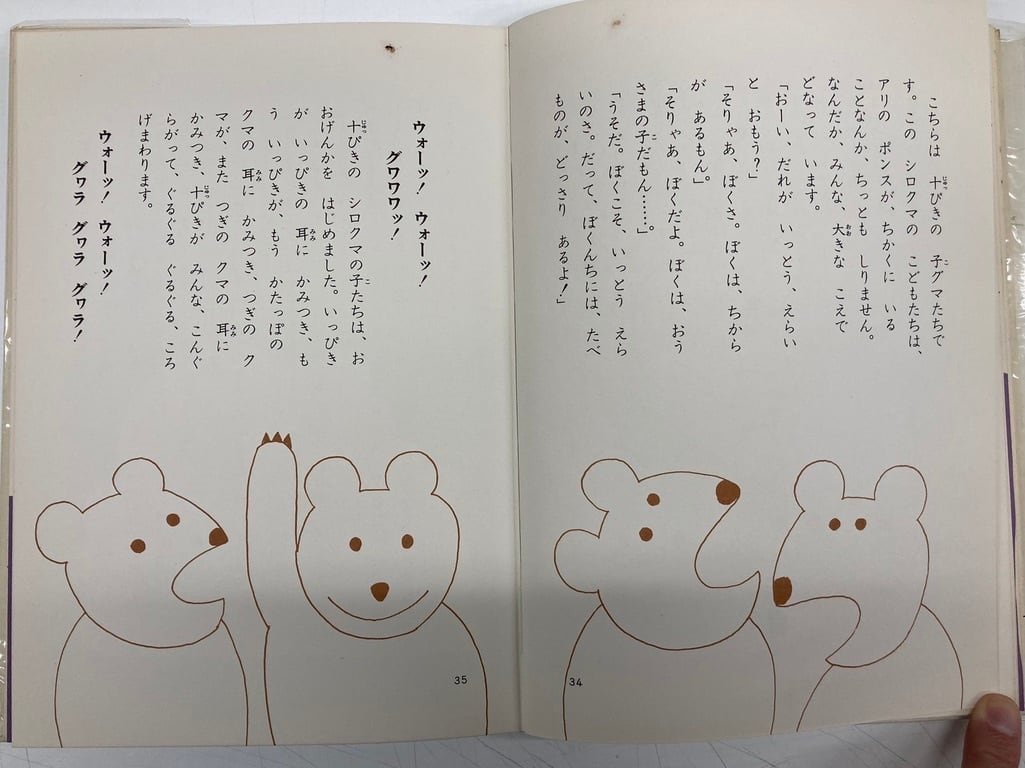 こちらは　十ぴきの　子グマたちで
す。この　シロクマの　こどもたちは、
アリの　ポンスが、ちかくに　いる
ことなんか、ちっとも　しりません。
なんだか、みんな、大きな　こえで
どなって　います。
「おーい、だれが　いっとう、えらい
と　おもう？」
「そりゃあ、ぼくさ。ぼくは、ちから
が　あるもん。」
「そりゃあ、ぼくだよ。ぼくは、おう
さまの子だもん……。」
「うそだ。ぼくこそ、いっとう　えら
いのさ。だって、ぼくんちには、たべ
ものが、どっさり　あるよ！」
34
ウォーッ！　ウォーッ！
グワワワッ！
十ぴきの　シロクマの子たちは、お
おげんかを　はじめました。いっぴき
が　いっぴきの　耳に　かみつき、も
う　いっぴきが、もう　かたっぽの
クマの　耳に　かみつき、つぎの　ク
マが、また　つぎの　クマの　耳に
かみつき、十ぴきが　みんな、こんぐ
らがって、ぐるぐる　ぐるぐる、ころ
げまわります。
ウォーッ！　ウォーッ！
グワラ　グワラ　グワラ！
35